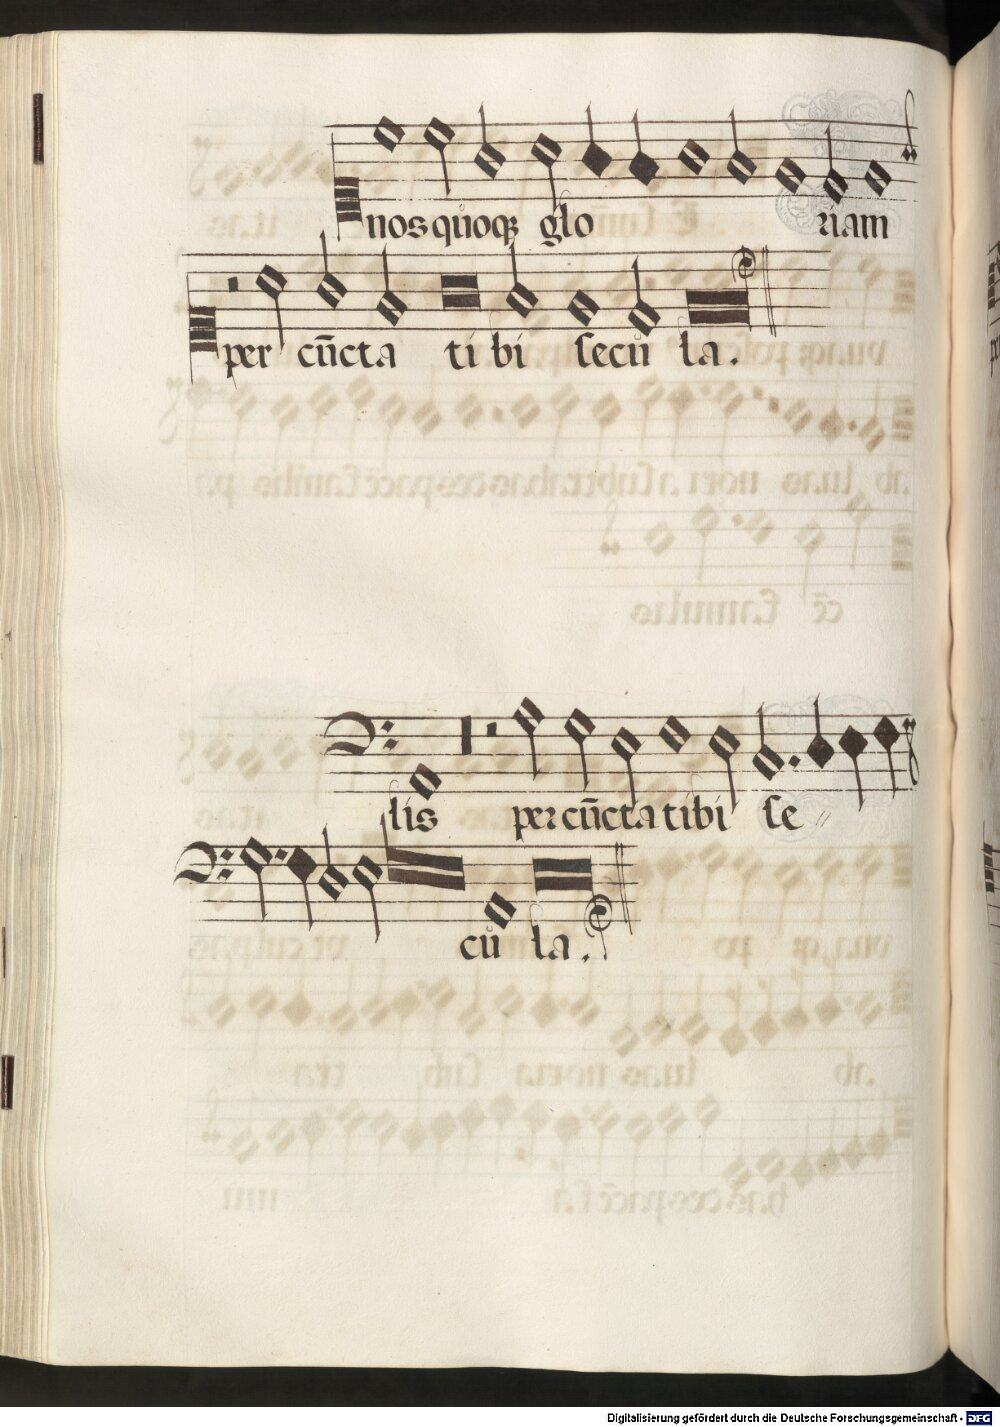 nos quoq; glo riam
per cūcta ti bi secu la.
lis per cūcta tibi se
cu la.
Digitalisierung gefördert durch die Deutsche Forschungsgemeinschaft - DFG